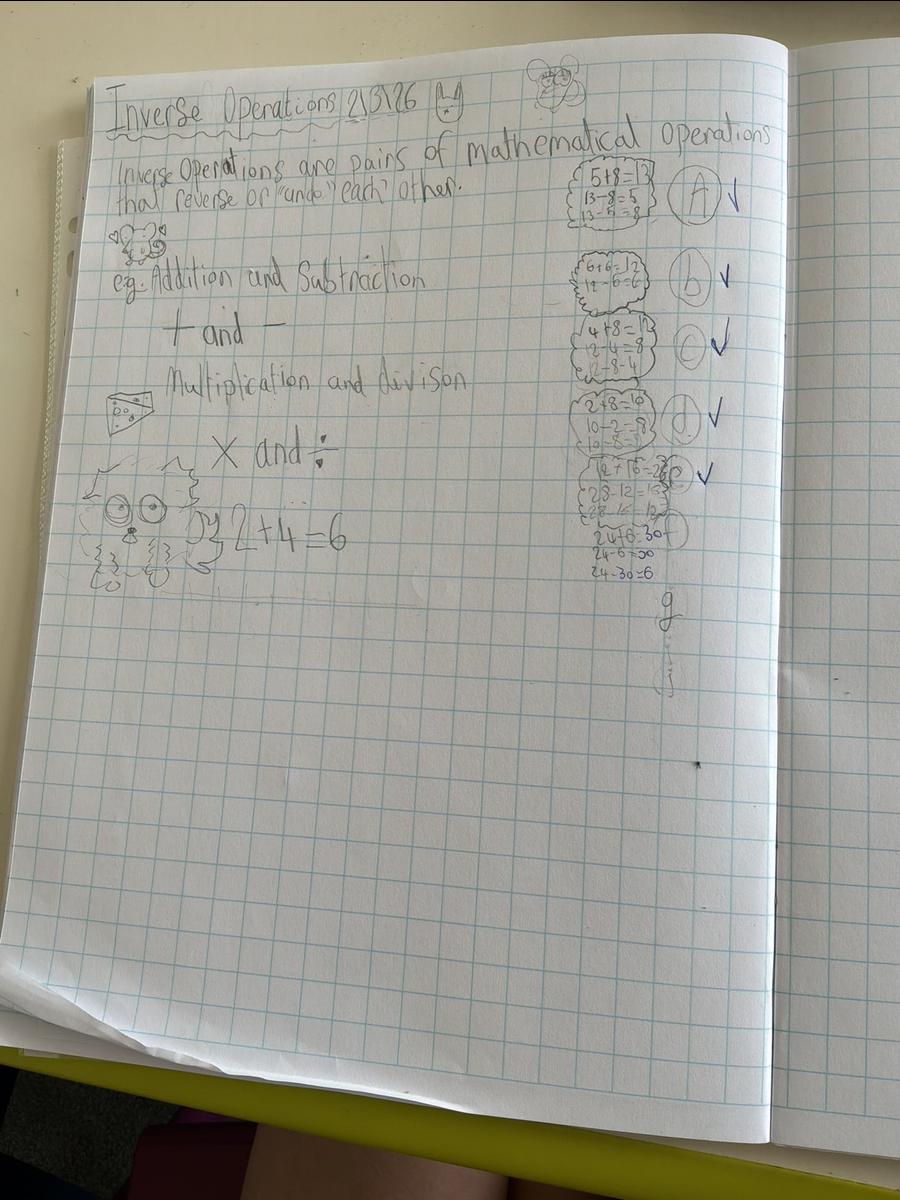 Inverse Operations 2\3\26
Inverse Operations are pairs of mathematical operations
that reverse or "undo" each other.
eg. Addition and Subtraction
+ and -
Multiplication and divison
X and ÷
2+4=6
5+8=13
13-8=5
13-5=8
A
6+6=12
12-6=6
b
4+8=12
12-4=8
12-8-4
c
2+8=10
10-2=8
10-8=
d
12+16=28
28-12=16
28-16=12
e
24+6=30
24-6=30
24-30=6
f
g